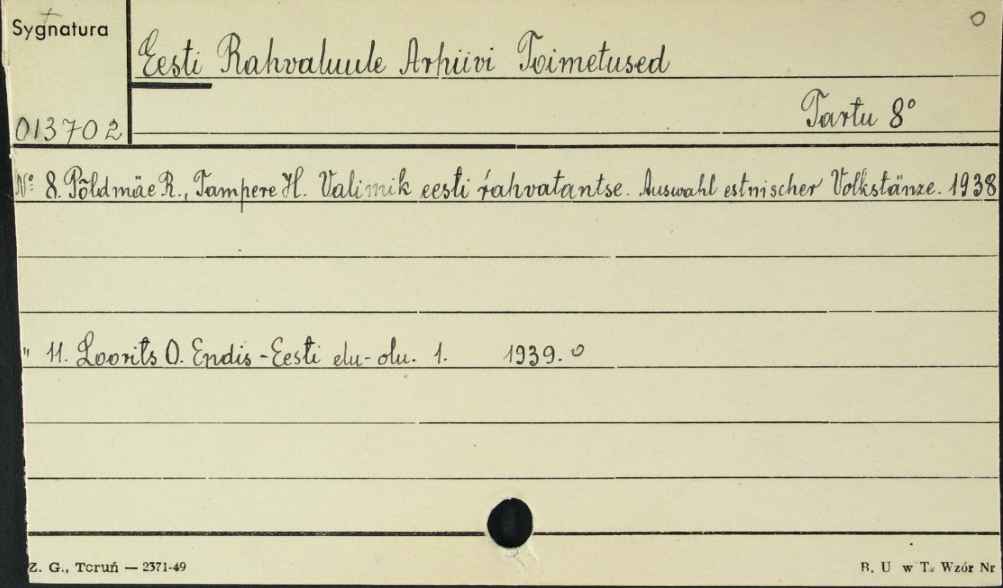 Sygnatura
Eesti Rahvaluule Arhiivi Toimetused
Tartu 8°
013702
Nº 8. Põldmäe R., Tampere H. Valimik eesti rahvatantse. Auswahl estnischer Volkstänze. 1938
" 11. Loorits O. Endis-Eesti elu-olu. 1. 1939. o
Z. G., Toruń — 2371-49
B. U w T. Wzór Nr